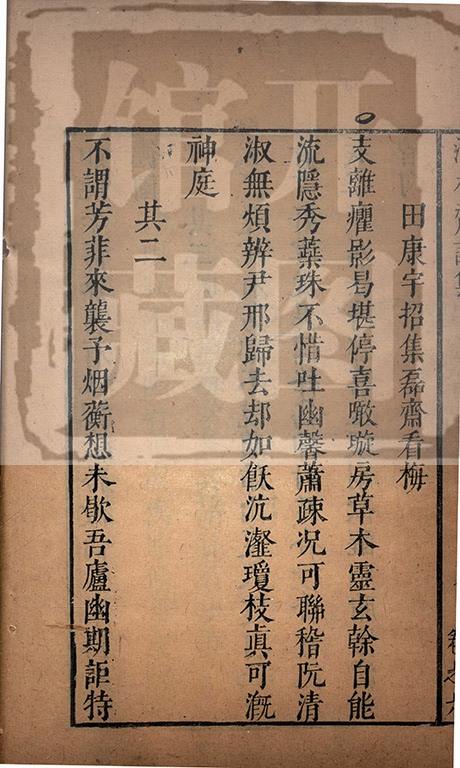 田康宇招集磊齋看梅
支離癯影曷堪停喜噉璇房草木靈玄榦自能
流隱秀蘂珠不惜吐幽馨蕭疎况可聯稽阮清
淑無煩辨尹邢歸去却如飫沆瀣瓊枝眞可漑
神庭
其二
不謂芳菲來襲予烟蘅想未歇吾廬幽期詎特
开图
馆藏